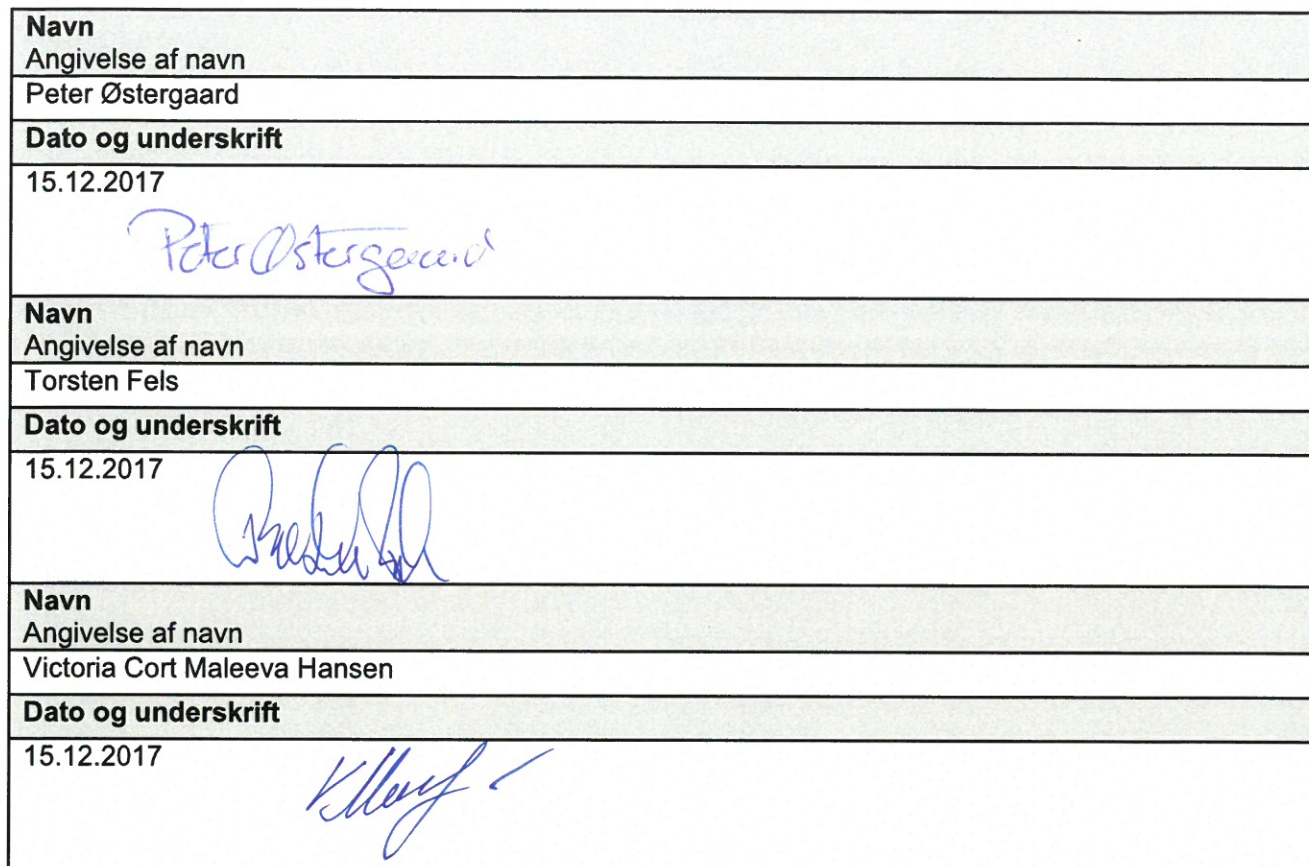 Navn
Angivelse af navn
Peter Østergaard
Dato og underskrift
15.12.2017
Peter Østergaard
Navn
Angivelse af navn
Torsten Fels
Dato og underskrift
15.12.2017
Navn
Angivelse af navn
Victoria Cort Maleeva Hansen
Dato og underskrift
15.12.2017